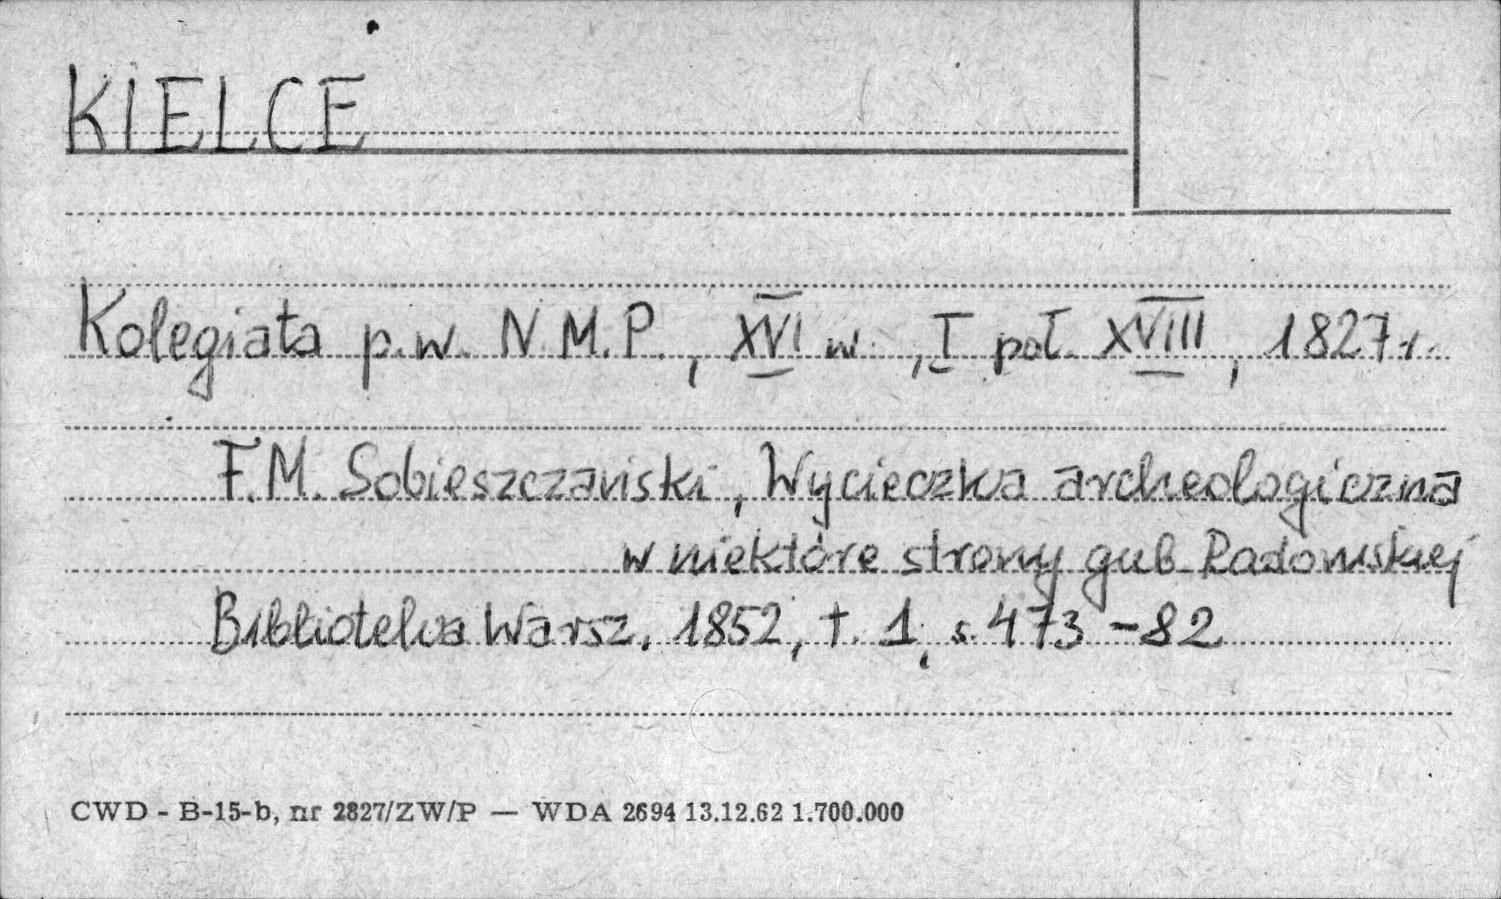 KIELCE
Kolegiata p.w. N.M.P., XVI w., I poł. XVIII, 1827 r.
F.M. Sobieszczański, Wycieczka archeologiczna
w niektóre strony gub. Radomskiej
Biblioteka Warsz. 1852, t. 1, s. 473-82
CWD - B-15-b, nr 2827/ZW/P — WDA 2694 13.12.62 1.700.000